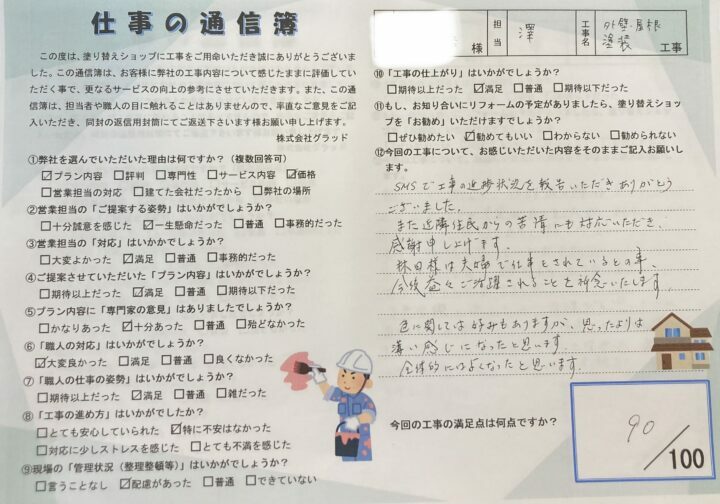 仕事の通信簿
様
担当
澤
工事名
外壁・屋根
塗装
工事
この度は、塗り替えショップに工事をご用命いただき誠にありがとうございま
した。この通信簿は、お客様に弊社の工事内容について感じたままに評価してい
ただく事で、更なるサービスの向上の参考にさせていただきます。また、この通
信簿は、担当者や職人の目に触れることはありませんので、率直なご意見をご記
入いただき、同封の返信用封筒にてご返送下さいます様お願い申し上げます。
株式会社グラッド
①弊社を選んでいただいた理由は何ですか？（複数回答可）
☑プラン内容 □評判 □専門性 □サービス内容 ☑価格
□営業担当の対応 □建てた会社だったから □弊社の場所
②営業担当の「ご提案する姿勢」はいかがでしょうか？
□十分誠意を感じた ☑一生懸命だった □普通 □事務的だった
③営業担当の「対応」はいかがでしょうか？
□大変よかった ☑満足 □普通 □事務的だった
④ご提案させていただいた「プラン内容」はいかがでしょうか？
□期待以上だった ☑満足 □普通 □期待以下だった
⑤プラン内容に「専門家の意見」はありましたでしょうか？
□かなりあった ☑十分あった □普通 □殆どなかった
⑥「職人の対応」はいかがでしょうか？
☑大変良かった □満足 □普通 □良くなかった
⑦「職人の仕事の姿勢」はいかがでしょうか？
□期待以上だった ☑満足 □普通 □雑だった
⑧「工事の進め方」はいかがでしたか？
□とても安心していられた ☑特に不安はなかった
□対応に少しストレスを感じた □とても不満を感じた
⑨現場の「管理状況（整理整頓等）」はいかがでしょうか？
□言うことなし ☑配慮があった □普通 □できていない
⑩「工事の仕上がり」はいかがでしょうか？
□期待以上だった ☑満足 □普通 □期待以下だった
⑪もし、お知り合いにリフォームの予定がありましたら、塗り替えショッ
プを「お勧め」いただけますでしょうか？
□ぜひ勧めたい ☑勧めてもいい □わからない □勧められない
⑫今回の工事について、お感じいただいた内容をそのままご記入お願いし
ます。
SMSで工事の進捗状況を報告いただきありがとう
ございました。
また近隣住民からの苦情にも対応いただき、
感謝申し上げます。
林田様は夫婦で仕事をされているとの事、
今後益々ご活躍されることを祈念いたします。
色に関しては好みもありますが、思ったよりは
薄い感じになったと思います。
全体的にはよくなったと思います。
今回の工事の満足点は何点ですか？
90
/100